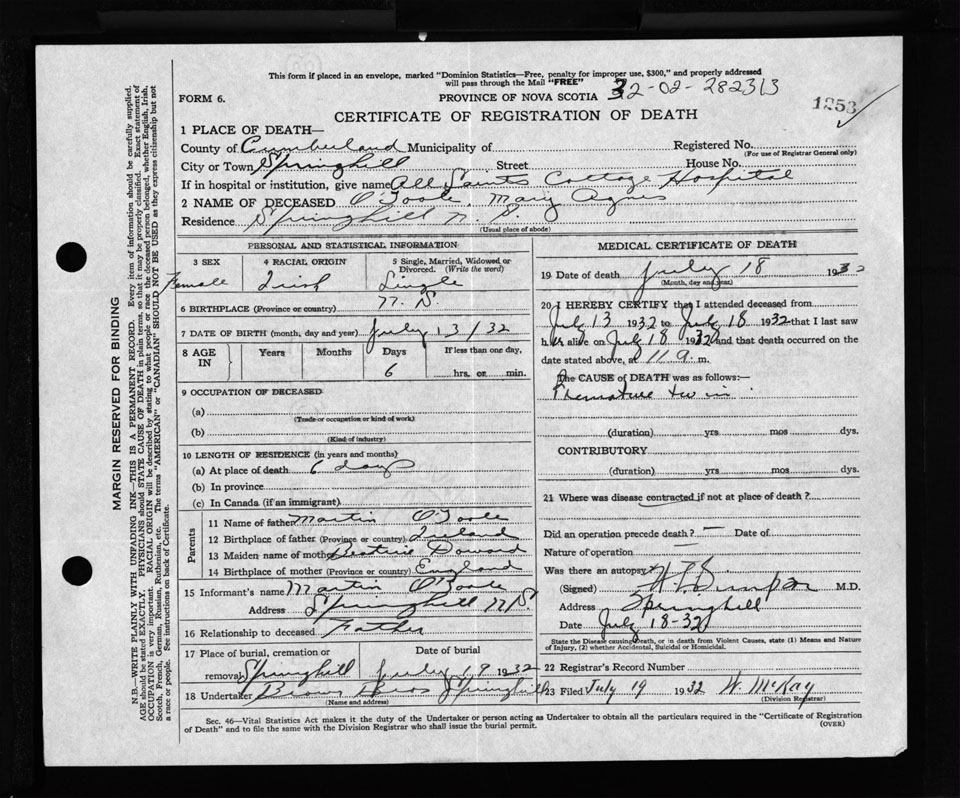 This form if placed in an envelope, marked "Dominion Statistics—Free, penalty for improper use, $300," and properly addressed
will pass through the Mail "FREE"
FORM 6.
PROVINCE OF NOVA SCOTIA 32-02-282313
1253
CERTIFICATE OF REGISTRATION OF DEATH
1 PLACE OF DEATH—
County of Cumberland Municipality of Registered No.
(For use of Registrar General only)
City or Town Springhill Street House No.
If in hospital or institution, give name All Saints Cottage Hospital
2 NAME OF DECEASED O'Toole, Mary Agnes
Residence Springhill N. S.
(Usual place of abode)
PERSONAL AND STATISTICAL INFORMATION
3 SEX 4 RACIAL ORIGIN 5 Single, Married, Widowed or
Divorced. (Write the word)
Female Irish Single
6 BIRTHPLACE (Province or country) N. S.
7 DATE OF BIRTH (month, day and year) July 13/32
8 AGE IN Years Months Days If less than one day,
6 hrs. or min.
9 OCCUPATION OF DECEASED
(a)
(Trade or occupation or kind of work)
(b)
(Kind of industry)
10 LENGTH OF RESIDENCE (in years and months)
(a) At place of death 6 days
(b) In province
(c) In Canada (if an immigrant)
Parents
11 Name of father Martin O'Toole
12 Birthplace of father (Province or country) Ireland
13 Maiden name of mother Beatrice
14 Birthplace of mother (Province or country) England
15 Informant's name Martin O'Toole
Address Springhill N.S.
16 Relationship to deceased Father
17 Place of burial, cremation or Date of burial
removal Springhill July 19 1932
18 Undertaker Brown Bros Springhill
(Name and address)
MEDICAL CERTIFICATE OF DEATH
19 Date of death July 18 1932
(Month, day and year)
20 I HEREBY CERTIFY that I attended deceased from
July 13 1932 to July 18 1932 that I last saw
her alive on July 18 1932 and that death occurred on the
date stated above, at 11 a. m.
The CAUSE of DEATH was as follows:—
Premature twin
(duration) yrs mos dys.
CONTRIBUTORY
(duration) yrs mos dys.
21 Where was disease contracted if not at place of death?
Did an operation precede death? — Date of
Nature of operation —
Was there an autopsy?
(Signed) M.D.
Address Springhill
Date July 18-32
State the Disease causing Death, or in death from Violent Causes, state (1) Means and Nature
of Injury, (2) whether Accidental, Suicidal or Homicidal.
22 Registrar's Record Number
23 Filed July 19 1932 W. McKay
(Division Registrar)
Sec. 46—Vital Statistics Act makes it the duty of the Undertaker or person acting as Undertaker to obtain all the particulars required in the "Certificate of Registration
of Death" and to file the same with the Division Registrar who shall issue the burial permit. (OVER)
MARGIN RESERVED FOR BINDING
N.B.—WRITE PLAINLY WITH UNFADING INK—THIS IS A PERMANENT RECORD. Every item of information should be carefully supplied.
AGE should be stated EXACTLY. PHYSICIANS should STATE CAUSE OF DEATH in plain terms, so that it may be properly classified. Exact statement of
OCCUPATION is very important. RACIAL ORIGIN will be described by stating to what people or race the deceased person belonged, whether English, Irish,
Scotch, French, German, Russian, Ruthenian, etc. The terms "AMERICAN" or "CANADIAN" SHOULD NOT BE USED as they express citizenship but not
a race or people. See instructions on back of Certificate.